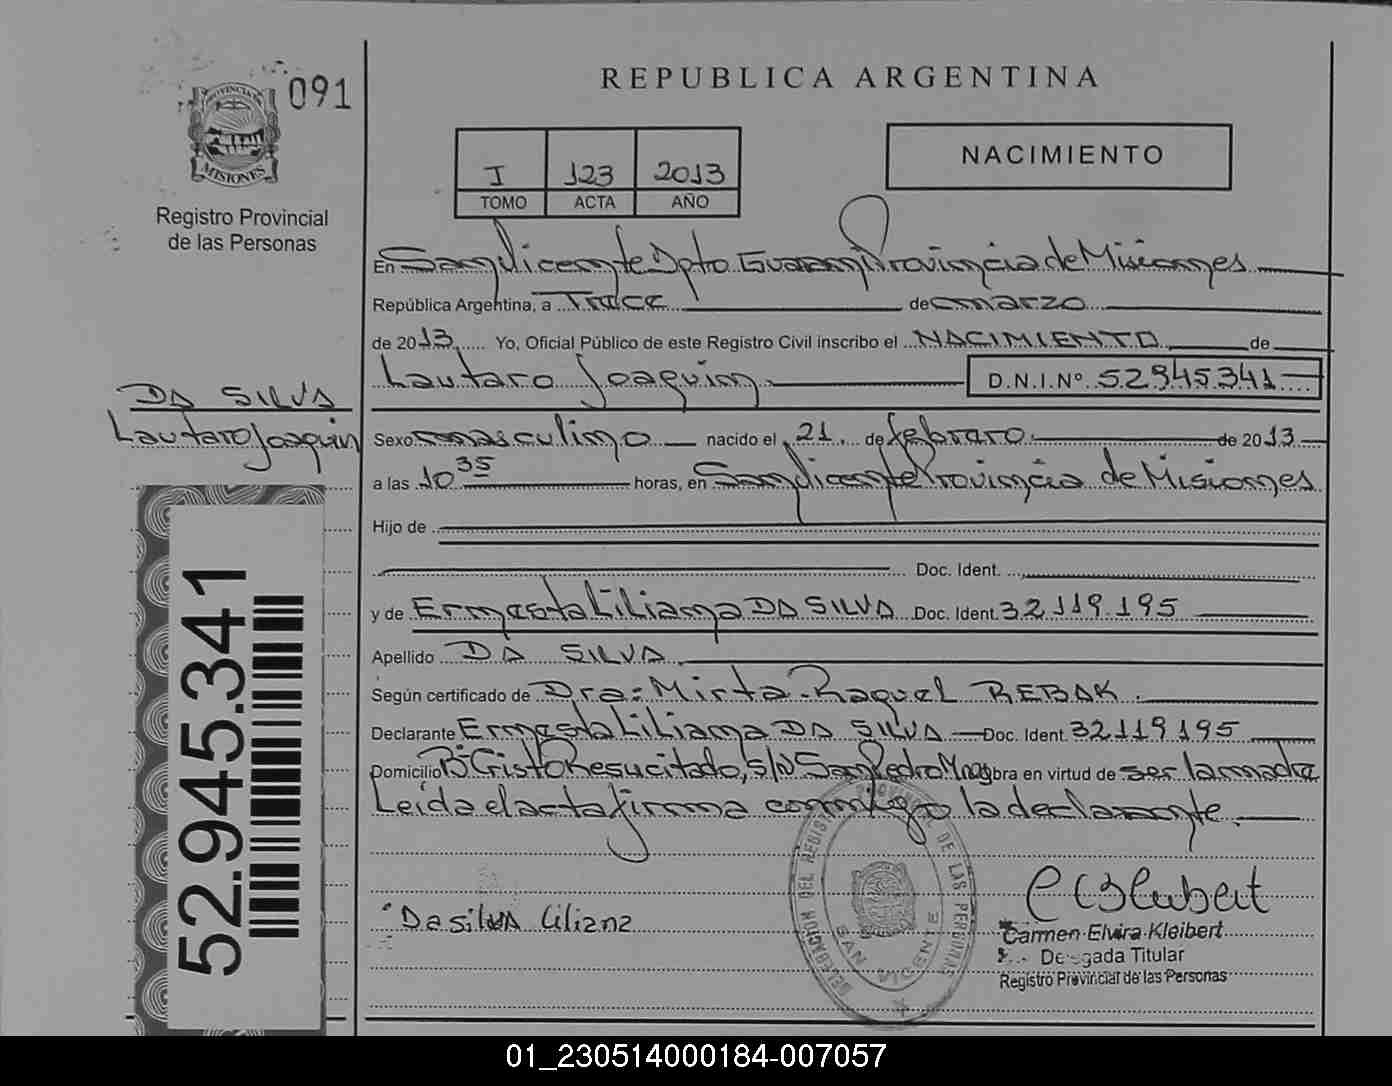 091
PROVINCIA DE
MISIONES
Registro Provincial
de las Personas
REPUBLICA ARGENTINA
I 123 2013
TOMO ACTA AÑO
NACIMIENTO
En San Vicente Dpto Guarani Provincia de Misiones
República Argentina, a Trece de marzo
de 2013 Yo, Oficial Público de este Registro Civil inscribo el NACIMIENTO de
Lautaro Joaquin D.N.I.Nº 52945341
DA SILVA
Lautaro Joaquin
Sexo masculino nacido el 21 de febrero de 2013
a las 10 35 horas, en San Vicente Provincia de Misiones
Hijo de
Doc. Ident.
y de Ernesta Liliana DA SILVA Doc. Ident. 32.119.195
Apellido DA SILVA
Según certificado de Dra: Mirta Raquel REBAK
Declarante Ernesta Liliana DA SILVA Doc. Ident. 32119195
Domicilio Bº Cristo Resucitado, s/n San Pedro Mnes obra en virtud de ser la madre
Leida el acta firma conmigo la declarante
52.945.341
DELEGACION DEL REGISTRO PROVINCIAL DE LAS PERSONAS
SAN VICENTE
Da silva liliana
Carmen Elvira Kleibert
Delegada Titular
Registro Provincial de las Personas
01_230514000184-007057